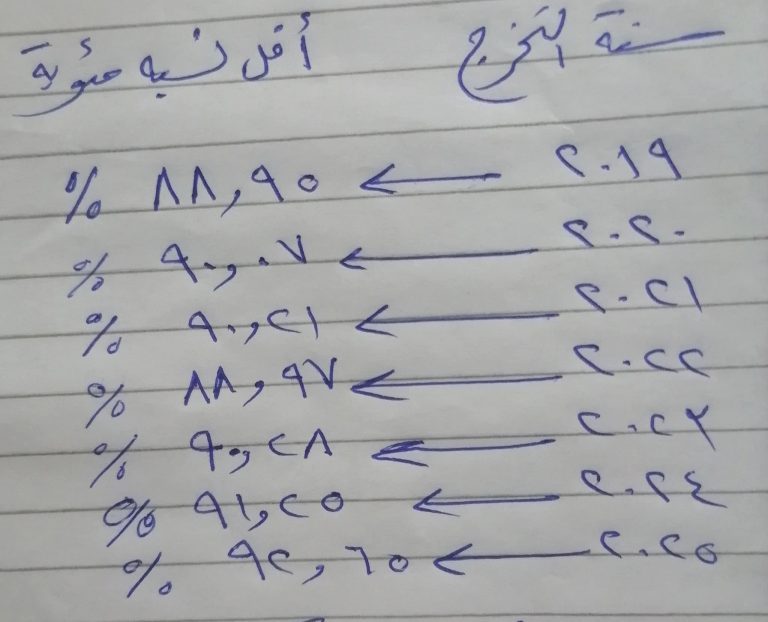 سنة التخرج أقل نسبه مئوية
٢٠١٩ ← ٨٨,٩٥ %
٢٠٢٠ ← ٩٠,٠٧ %
٢٠٢١ ← ٩٠,٢١ %
٢٠٢٢ ← ٨٨,٩٧ %
٢٠٢٣ ← ٩٠,٢٨ %
٢٠٢٤ ← ٩١,٢٥ %
٢٠٢٥ ← ٩٢,٦٥ %